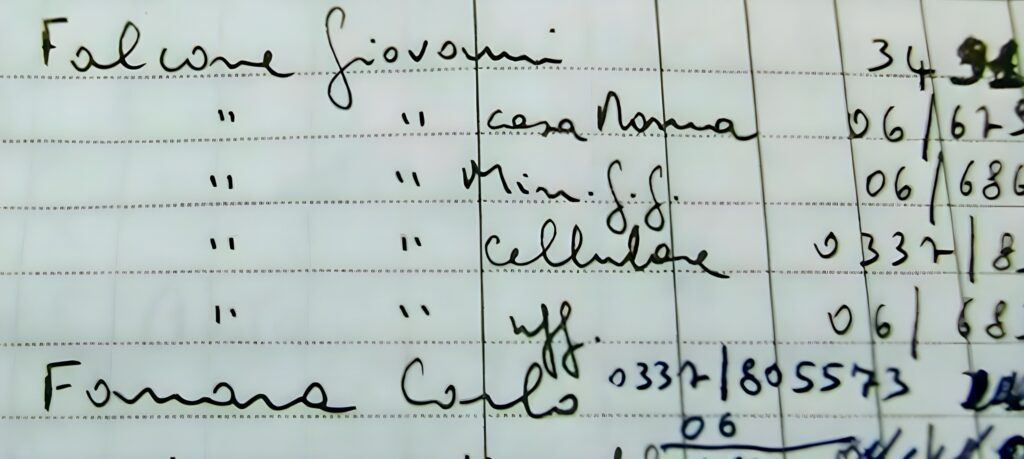 Falcone Giovanni 34
" " casa Roma 06/675
" " Min. g.g. 06/686
" " cellulare 0337/8
" " uff. 06/68
Fornara Carlo 0337/805573
06